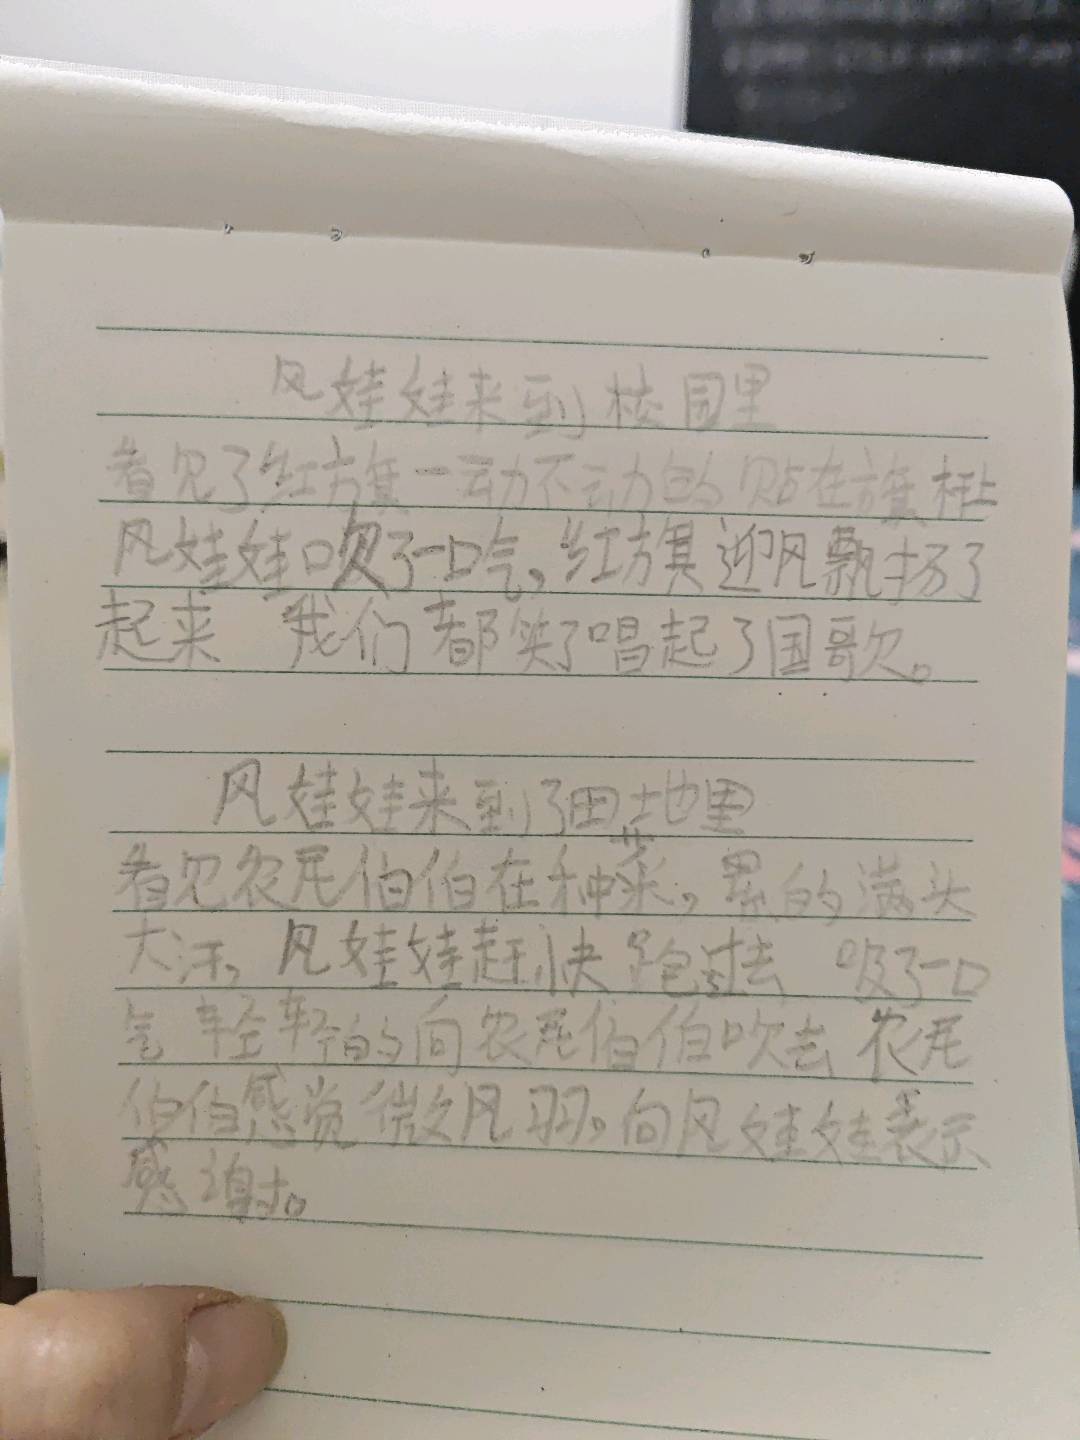 风娃娃来到校园里
看见了红旗一动不动的贴在旗杆上
风娃娃吹了一口气,红旗迎风飘扬了
起来 我们都笑了唱起了国歌。
风娃娃来到了田地里
看见农民伯伯在种菜,累的满头
大汗,风娃娃赶快跑过去 吸了一口
气 轻轻的向农民伯伯吹去 农民
伯伯感觉微风习习。向风娃娃表示
感谢。